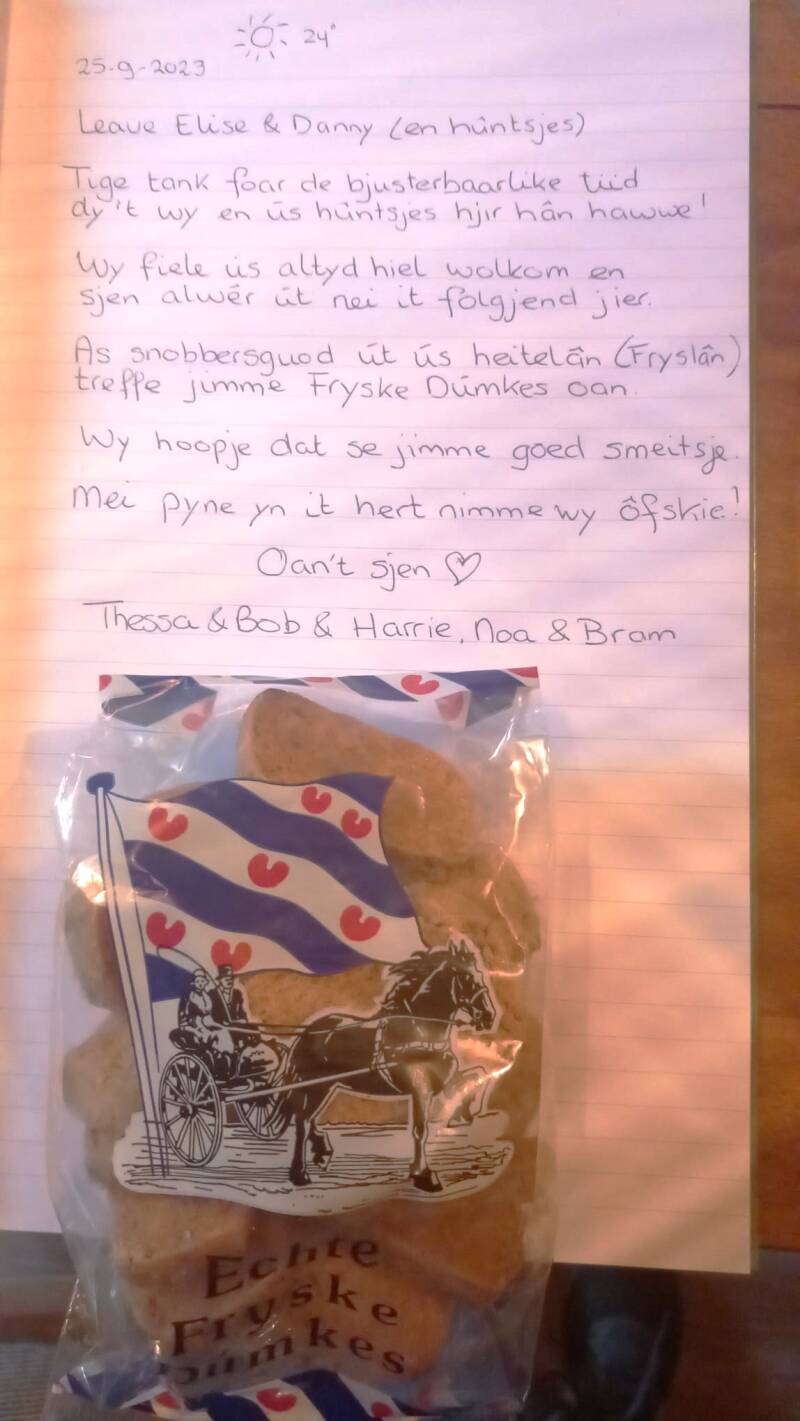 24°
25-9-2023
Leave Elise & Danny (en hûntsjes)
Tige tank foar de bjusterbaarlike tiid
dy't wy en ús hûntsjes hjir hân hawwe!
Wy fiele ús altyd hiel wolkom en
sjen alwér út nei it folgjend jier.
As snobbersguod út ús heitelân (Fryslân)
treffe jimme Fryske Dúmkes oan.
Wy hoopje dat se jimme goed smeitsje.
Mei pyne yn it hert nimme wy ôfskie!
Oan't sjen ♡
Thessa & Bob & Harrie, Noa & Bram
Echte
Fryske
Dúmkes